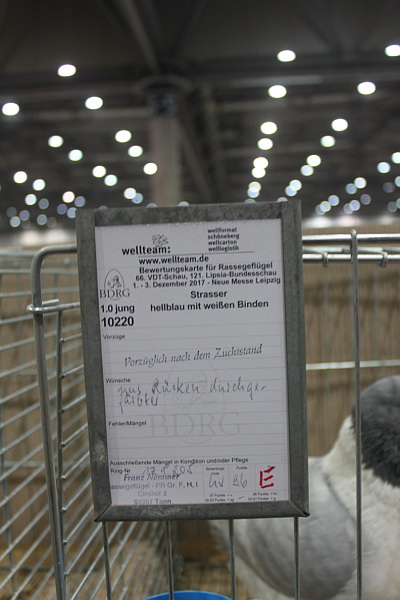 wellteam:
wellformat
schöneberg
wellcarton
welllogistik
www.wellteam.de
Bewertungskarte für Rassegeflügel
66. VDT-Schau, 121. Lipsia-Bundesschau
1. - 3. Dezember 2017 - Neue Messe Leipzig
BDRG
Strasser
1.0 jung
hellblau mit weißen Binden
10220
Vorzüge
Vorzüglich nach dem Zuchtstand
Wünsche
nur Rücken durchge
färbter
BDRG
Fehler/Mängel
Ausschließende Mängel in Kondition und/oder Pflege
Ring-Nr.
Franz Nömmer
assegeflügel - PR Gr. F, H, I
Tann
Punkte
96
E